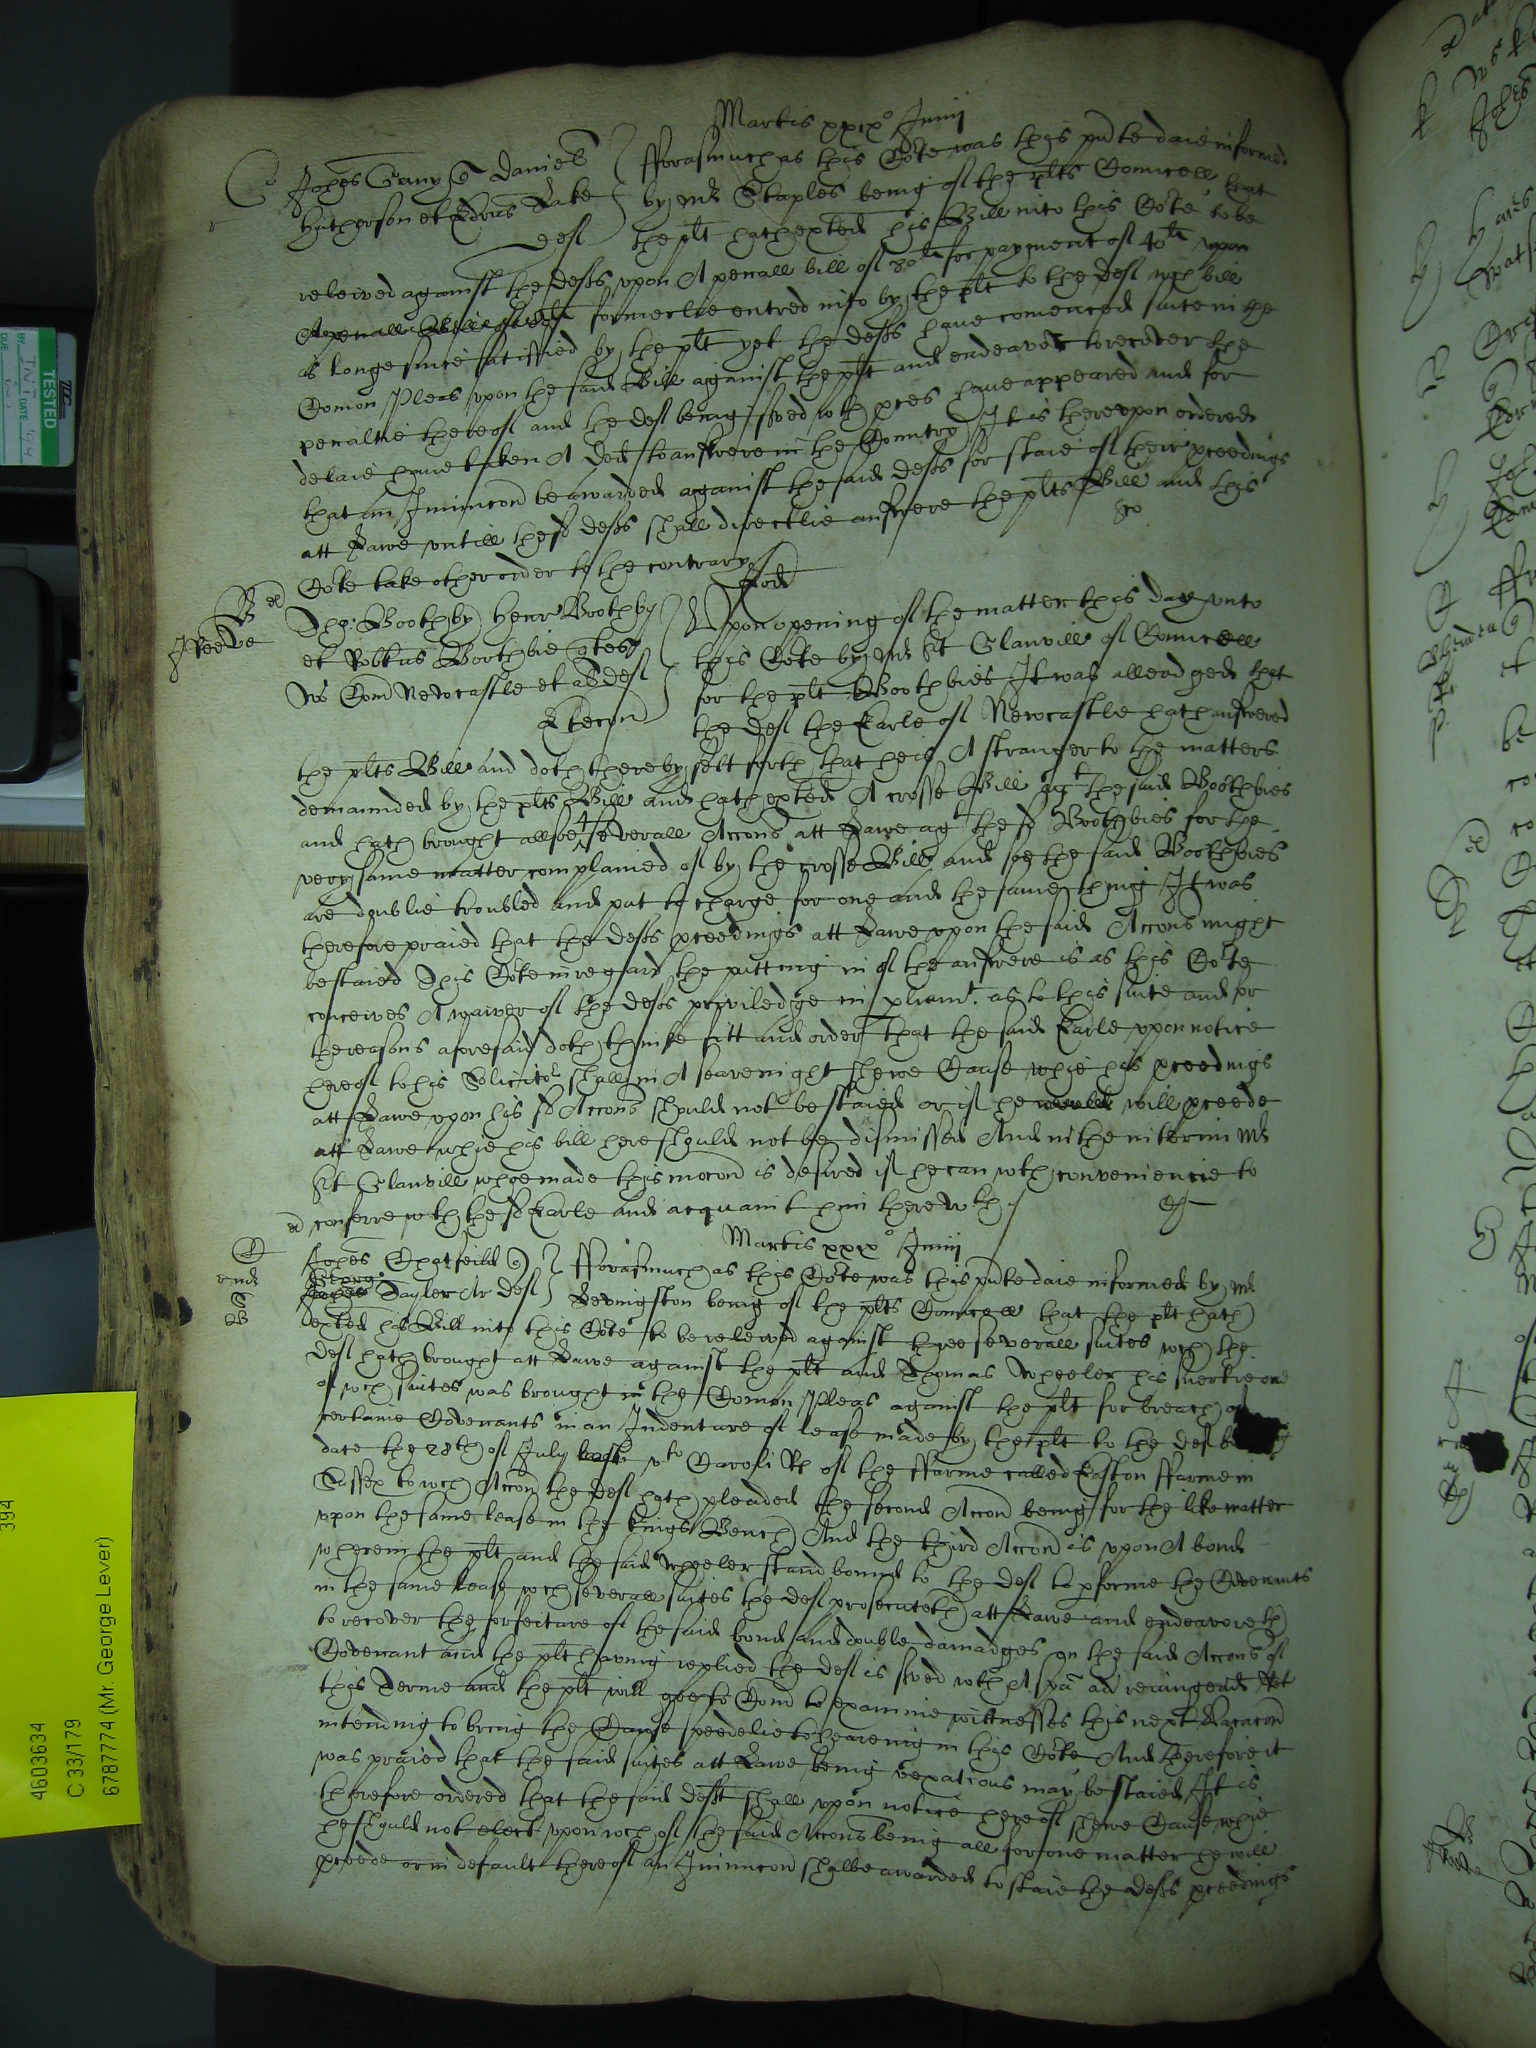 Martis xxixo Junii
Johes Cany Daniell fforasmuch as this Cote was this pnte daie informed
Hutherson et Edrus Lake by Mr Staples being of the plts Councell that
defts the plt hath exhted his Bill into this Cote to be
releived against the defts upon A penall bill of 80li for payment of 40li upon
formerlie entred into by the plt to the deft wch bill
is longe since satisfied by the plt yet the defts have comenced suite in the
Comon Pleas upon the said Bill against the plt and endeavor to recover the
penaltie thereof and the deft being sved wth pces have appeared and for
delaie have taken A Ded to answere in the Country It is thereupon ordered
that an Iniunccon be awarded against the said defts for staie of their pceedings
att Lawe untill the sd defts shall directlie answere the plts Bill and this
Cote take other order to the contrary
Tho: Boothby Henr Boothby Upon opening of the matter this day unto
et Robtus Boothbie quer this Cote by Mr St Glanvill of Councell
Vs Com Newcastle et al deft for the plt Boothbies It was alleadged that
the deft the Earle of Newcastle hath answered
the plts Bill and doth thereby sett forth that he is A stranger to the matters
demaunded by the plts Bill and hath exhted A crosse Bill agt the said Boothbies
and hath brought allsoe severall Accons att Lawe agt the sd Boothbies for the
very same matter complained of by the crosse Bill and soe the said Boothbies
are doublie troubled and put to charge for one and the same thing It was
therefore praied that the defts pceedings att Lawe upon the said Accons might
be staied This Cote in regard the putting in of the answere is as this Cote
conceives A waiver of the defts priviledge in pliamt as to this suite and for
the reasons aforesaid doth thinke fitt and order that the said Earle upon notice
hereof to his Solicitor shall in A seavenight shewe Cause whie his pceedings
att Lawe upon his sd Accons should not be staied or if he will pceede
att Lawe whie his bill here should not be dismissed And in the interim Mr
St Glanvill whoe made this mocon is desired if he can wth conveniencie to
conferre wth the sd Earle and acquaint him therewth
Martis xxixo Junii
Johes Chatfeild fforasmuch as this Cote was this pnte daie informed by Mr
Tayler Ar deft Levingston being of the plts Councell that the plt hath
exhted his Bill into this Cote to be releived against three severall suites wch the
deft hath brought att Lawe against the plt and Thomas Wheeler his suertie one
of wch suites was brought in the Comon Pleas against the plt for breach of
certaine Covenants in an Indenture of lease made by the plt to the deft
date the 28th of July last Caroli Rs of the ffarme called Easton ffarme in
Sussex to wch Accon the deft hath pleaded the second Accon being for the like matter
upon the same lease in the Kings Bench And the third Accon is upon A bond
wherein the plt and the said Wheeler stand bound to the deft to pforme the Covenants
in the same lease wch severall suites the deft prosecuteth att Lawe and endeavoreth
to recover the forfeiture of the said bond and double damadges on the said Accons of
Covenant and the plt having replied the deft is sved wth A spa ad reiungend ret
this Terme and the plt will goe to Comd to examine wittnesses this next Vacacon
intending to bring the Cause speedelie to hearing in this Cote And therefore it
was praied that the said suites att Lawe being vexatious may be staied It is
therefore ordered that the said deft shall upon notice hereof shewe Cause whie
he should not elect upon wch of the said Accons being all for one matter he will
pceede or in default thereof an Iniunccon shalbe awarded to staie the defts pceedings
TESTED
394
4603634
C 33/179
6787774 (Mr. George Lever)